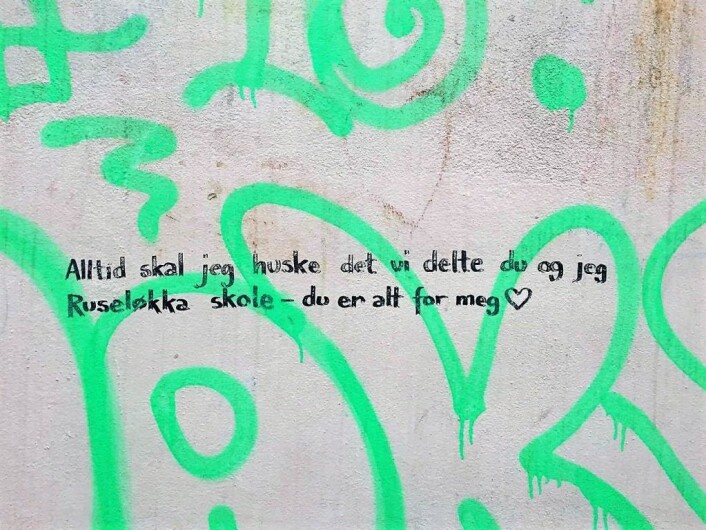 Alltid skal jeg huske det vi delte du og jeg
Ruseløkka skole – du er alt for meg ♡